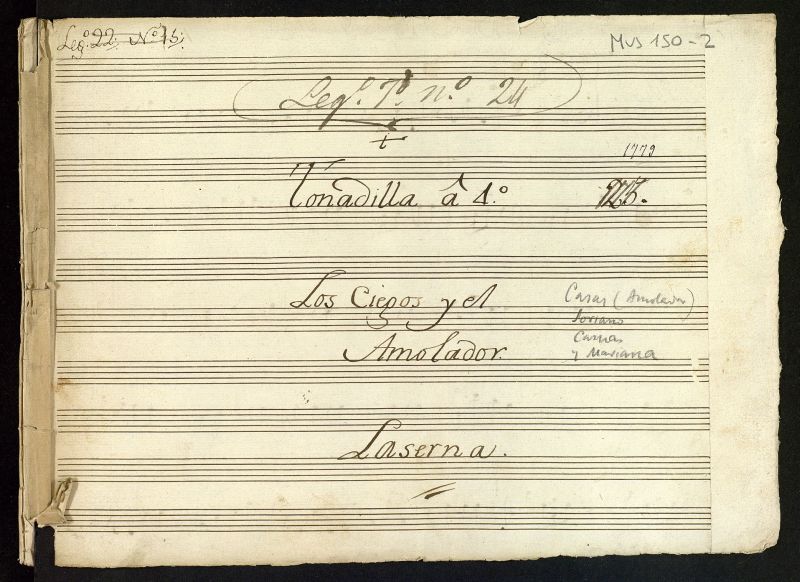 Leg.º 22. Nº 15.
Mus 150-2
Leg.º 7º n.º 24
1779
Tonadilla â 4.º
Los Ciegos y el
Amolador.
Casas (Amolador)
Soriano
y Mariana
Laserna.